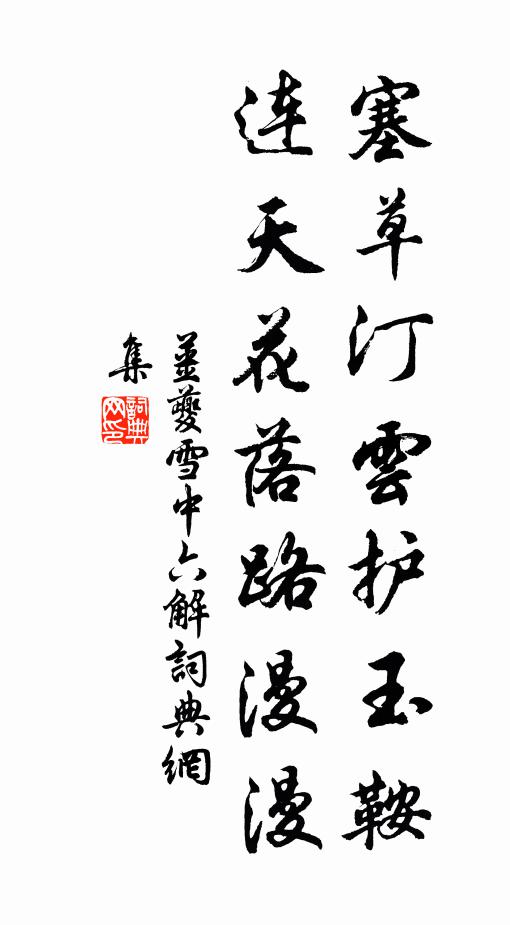 塞草汀雲护玉鞍
连天花落路漫漫
姜夔雪中六解詞典網
集
詞典
网印